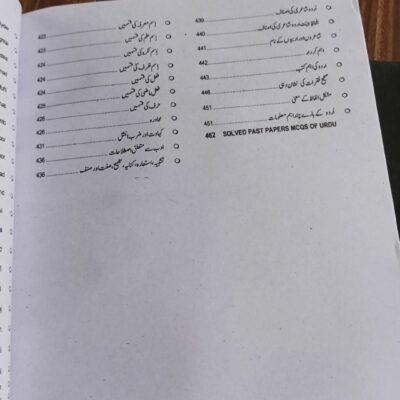 اردو شاعری کی اصناف 439
440
شاعروں اور ادیبوں کے نام 441
اہم کردار 441
اردو کی اہم کتب 443
صحیح فقرات کی نشان دہی 446
مشکل الفاظ کے معنی 451
اردو کے بارے چند اہم معلومات 451
462 SOLVED PAST PAPERS MCQS OF URDU
اسم معرفہ کی قسمیں 423
اسم علم کی قسمیں 423
اسم نکرہ کی قسمیں 424
اسم ظرف کی قسمیں 424
فعل کی قسمیں 424
فعل ماضی کی قسمیں 425
حرف کی قسمیں 425
محاورہ 426
کہاوت اور ضرب المثل 431
ادب سے متعلق اصطلاحات 436
تشبیہ، استعارہ، کنایہ، تلمیح، صنعت اور صنف 436